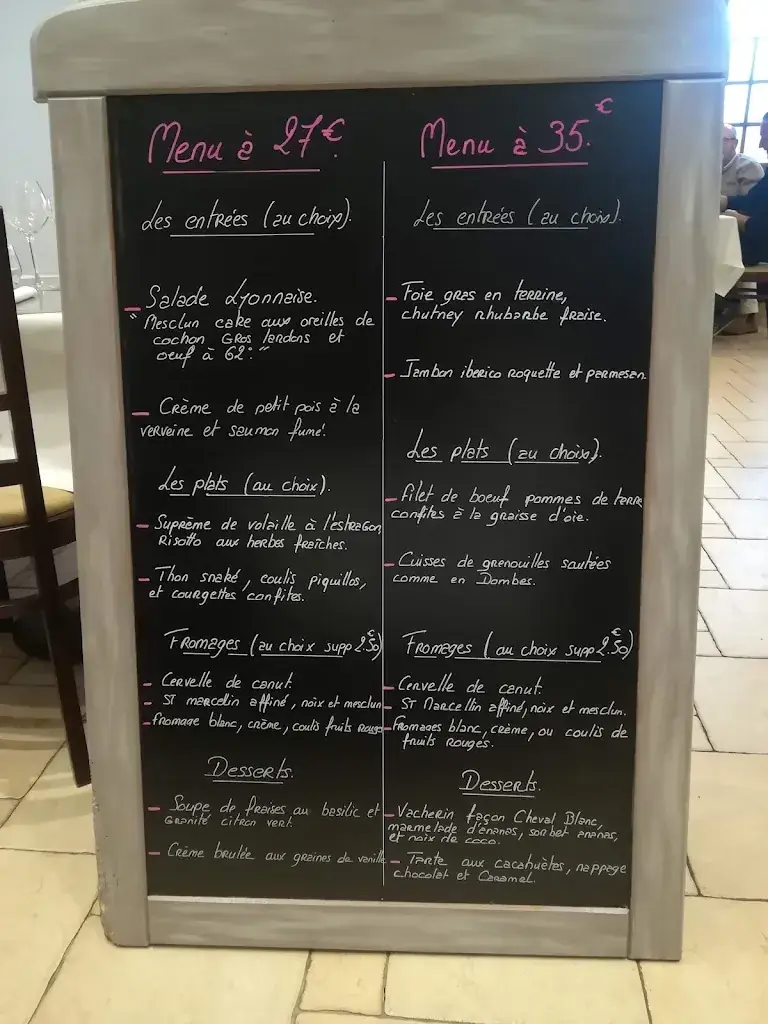 Menu à 27€
Les entrées (au choix).
- Salade Lyonnaise.
"Mesclun cake aux oreilles de
cochon Gros lardons et
oeuf à 62°."
- Crème de petit pois à la
verveine et saumon fumé.
Les plats (au choix).
- Suprême de volaille à l'estragon,
Risotto aux herbes fraîches.
- Thon snaké, coulis piquillos,
et courgettes confites.
Fromages (au choix supp 2.50€)
- Cervelle de canut.
- St marcelin affiné, noix et mesclun
- fromage blanc, crème, coulis fruits rouges
Desserts.
- Soupe de fraises au basilic et
Granité citron vert.
- Crème brulée aux graines de vanille
Menu à 35.€
Les entrées (au choix).
- Foie gras en terrine,
chutney rhubarbe fraise.
- Jambon iberico roquette et parmesan
Les plats (au choix).
- Filet de boeuf pommes de terre
confites à la graisse d'oie.
- Cuisses de grenouilles sautées
comme en Dombes.
Fromages (au choix supp 2.50€)
- Cervelle de canut.
- St Marcellin affiné, noix et mesclun.
- Fromages blanc, crème, ou coulis de
fruits rouges.
Desserts.
- Vacherin façon Cheval Blanc,
marmelade d'ananas, sorbet ananas,
et noix de coco.
- Tarte aux cacahuètes, nappage
chocolat et Caramel.